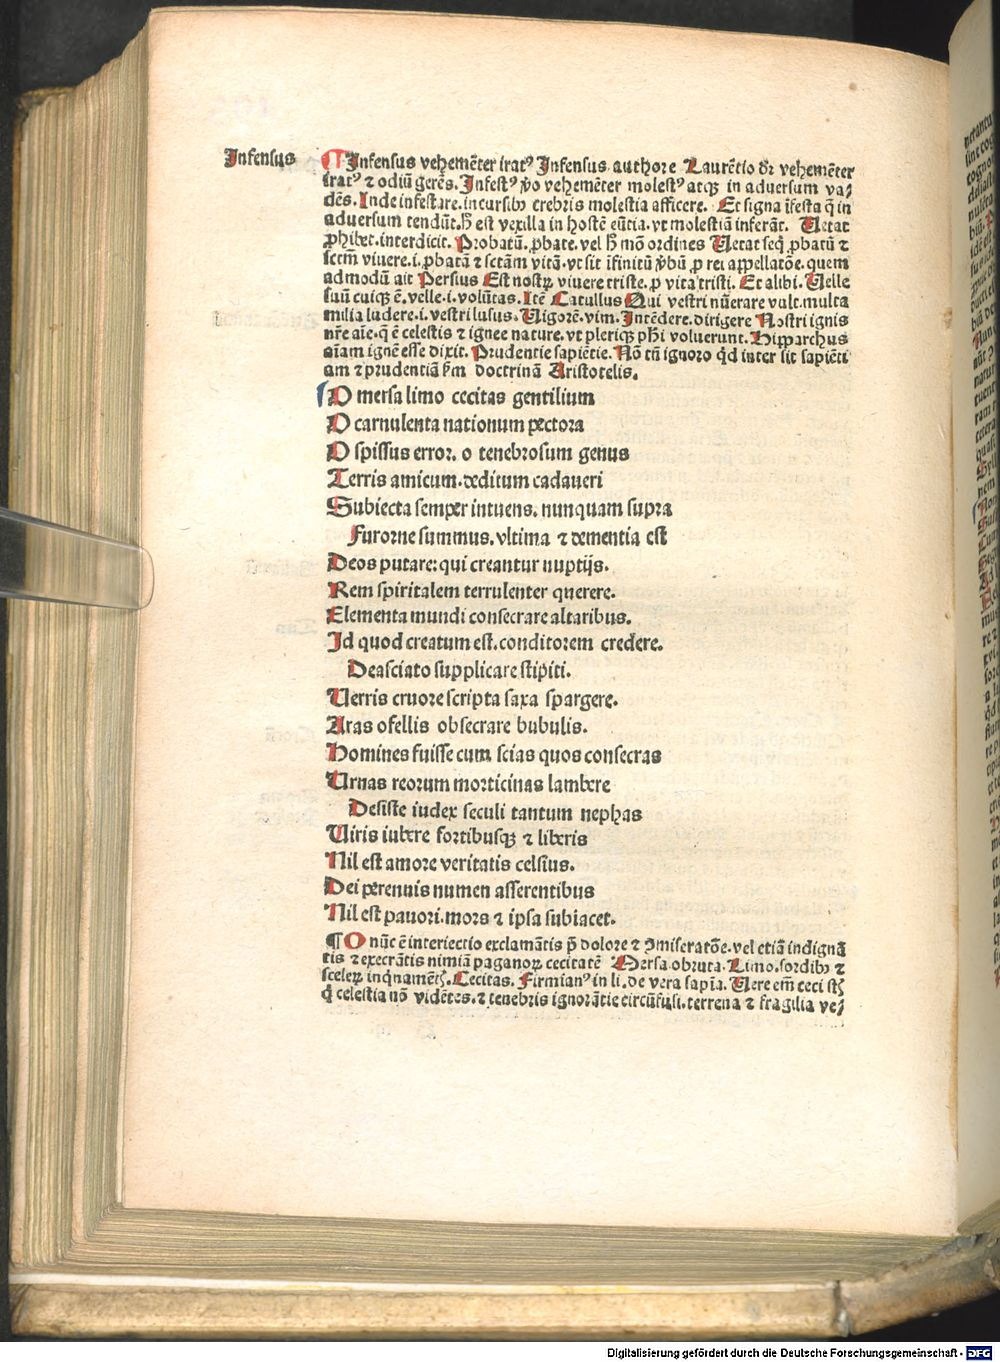 Infensus
¶ Infensus vehemēter iratꝰ Infensus authore Laurētio dr̄ vehemēter
iratꝰ ⁊ odiū gerēs. Infestꝰ ꝟo vehemēter molestꝰ atqꝫ in aduersum va⸗
dēs. Inde infestare. incursibꝰ crebris molestia afficere. Et signa īfesta q̄ in
aduersum tendūt. h̄ est vexilla in hostē eūtia. vt molestiā inferāt. Uetat
ꝓhibet. interdicit. Probatū. ꝓbate. vel h̄ mō ordines Uetat seq̄ ꝓbatū ⁊
sctm̄ viuere. i. ꝓbatā ⁊ sctam̄ vitā. vt sit īfinitū ꝟbū ꝓ rei appellatōe. quem
admodū ait Persius Est nostrꝝ viuere triste. ꝓ vita tristi. Et alibi. Uelle
suū cuiqꝫ ē. velle. i. volūtas. Itē Catullus Qui vestri nūerare vult. multa
milia ludere. i. vestri lusus. Uigorē. vim. Intēdere. dirigere Nostri ignis
nr̄e aīe. q̄ ē celestis ⁊ ignee nature. vt pleriqꝫ ph̄i voluerunt. Hipparchus
aīam ignē esse dixit. Prudentie sapiētie. Nō tn̄ ignoro qd̄ inter sit sapiēti
am ⁊ prudentiā ẜm doctrinā Aristotelis.
O mersa limo cecitas gentilium
O carnulenta nationum pectora
O spissus error. o tenebrosum genus
Terris amicum. deditum cadaueri
Subiecta semper intuens. nunquam supra
Furorne summus. vltima ⁊ dementia est
Deos putare: qui creantur nuptijs.
Rem spiritalem terrulenter querere.
Elementa mundi consecrare altaribus.
Id quod creatum est. conditorem credere.
Deasciato supplicare stipiti.
Uerris cruore scripta saxa spargere.
Aras ofellis obsecrare bubulis.
Homines fuisse cum scias quos consecras
Urnas reorum morticinas lambere
Desiste iudex seculi tantum nephas
Uiris iubere fortibusqꝫ ⁊ liberis
Nil est amore veritatis celsius.
Dei perennis numen asserentibus
Nil est pauori. mors ⁊ ipsa subiacet.
¶ O nūc ē interiectio exclamātis p̄ dolore ⁊ ꝯmiseratōe. vel etiā indignā
tis ⁊ execrātis nimiā paganoꝝ cecitatē Mersa obruta. Limo. sordibꝰ ⁊
scelerꝝ inqͥnamētꝭ. Cecitas. Firmianꝰ in li. de vera sapīa. Uere em̄ ceci st̄
q̄ celestia nō vidētes. ⁊ tenebris ignorātie circūfusi. terrena ⁊ fragilia ve⸗
Digitalisierung gefördert durch die Deutsche Forschungsgemeinschaft - DFG